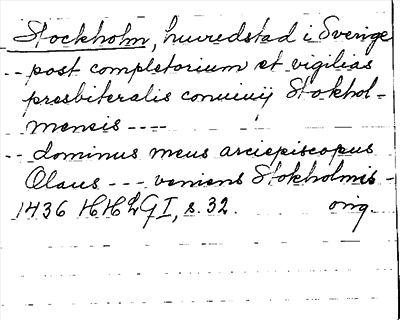 Stockholm, huvredstad i Sverige
-- post completorium et vigilias
presbiteralis conuiuij Stokhol-
mensis ----
-- dominus meus arciepiscopus
Olaus --- veniens Stokholmis -
1436 HHLG I, s. 32. orig.